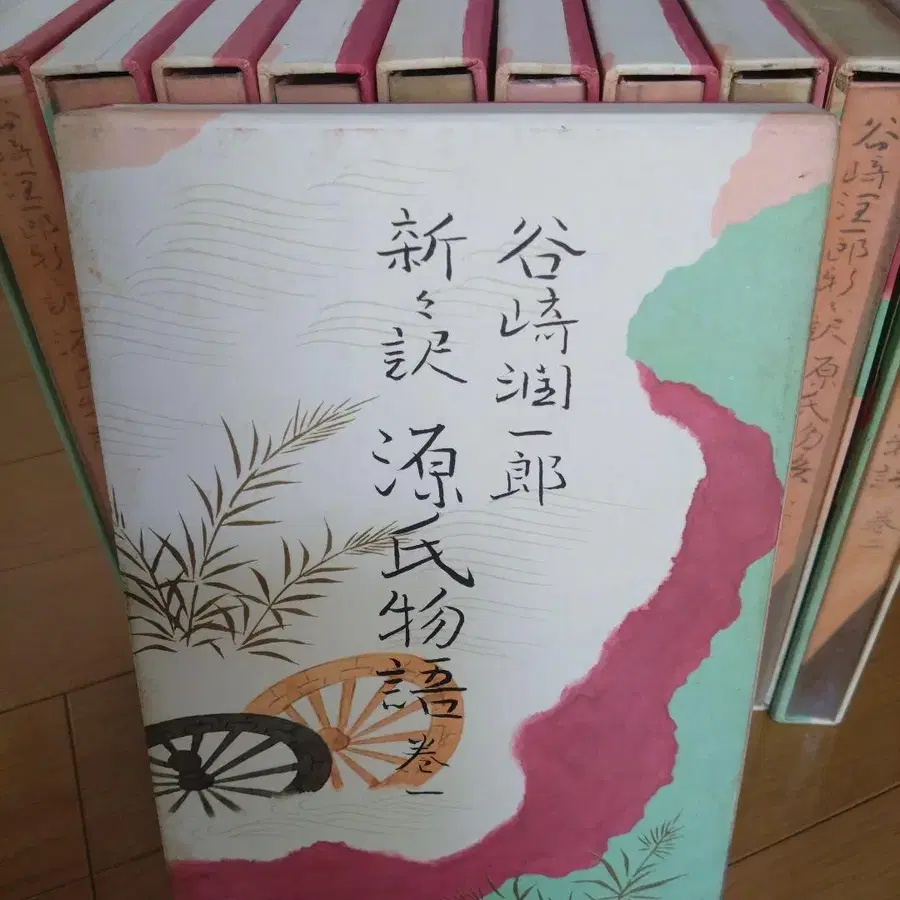 谷崎潤一郎
新々訳 源氏物語 巻一
谷崎潤一郎新々訳 源氏物語
巻二